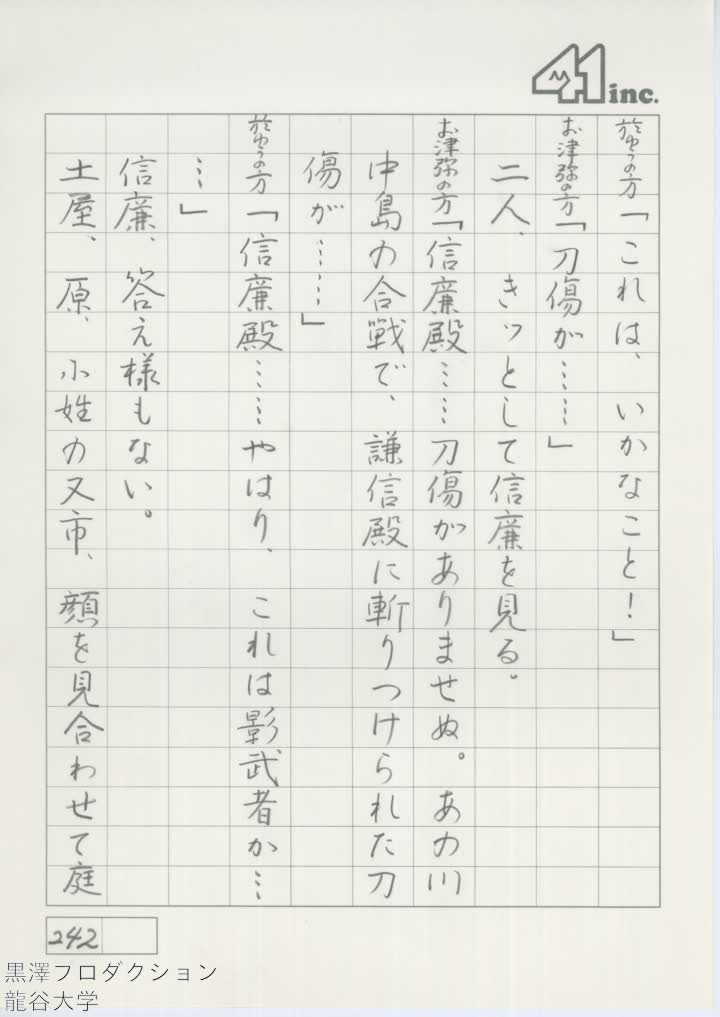 41 inc.
於ゆうの方「これは、いかなこと！」
お津弥の方「刀傷が……」
二人、きッとして信廉を見る。
お津弥の方「信廉殿……刀傷がありませぬ。あの川
中島の合戦で、謙信殿に斬りつけられた刀
傷が……」
於ゆうの方「信廉殿……やはり、これは影武者か…
…」
信廉、答え様もない。
土屋、原、小姓の又市、顔を見合わせて庭
242
黒澤フロダクション
龍谷大学